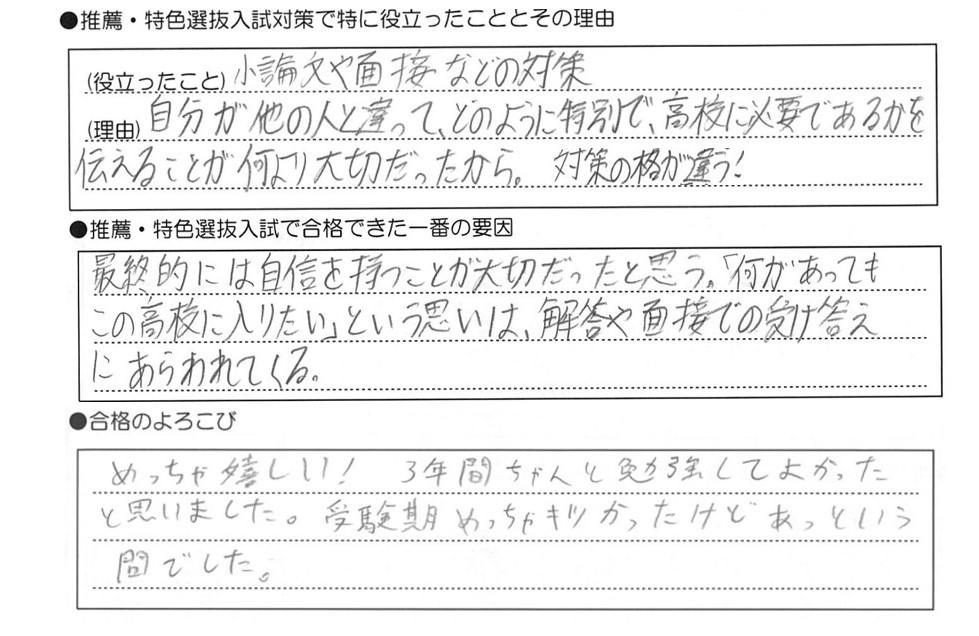 ●推薦・特色選抜入試対策で特に役立ったこととその理由
(役立ったこと) 小論文や面接などの対策
(理由) 自分が他の人と違って、どのように特別で、高校に必要であるかを
伝えることが何より大切だったから。 対策の格が違う!
●推薦・特色選抜入試で合格できた一番の要因
最終的には自信を持つことが大切だったと思う。「何があっても
この高校に入りたい」という思いは、解答や面接での受け答え
にあらわれてくる。
●合格のよろこび
めっちゃ嬉しい! 3年間ちゃんと勉強してよかった
と思いました。受験期めっちゃキツかったけどあっという
間でした。